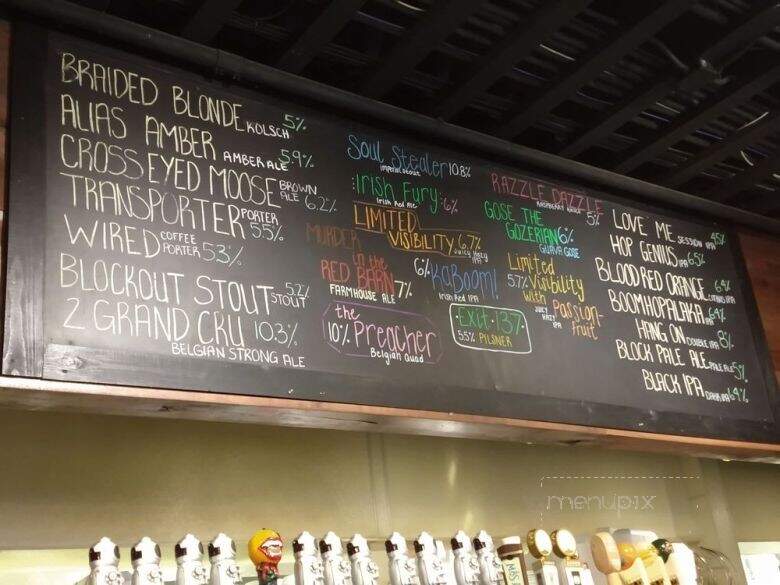 BRAIDED BLONDE KOLSCH 5%
ALIAS AMBER AMBER ALE 5.9%
CROSS EYED MOOSE BROWN ALE 6.2%
TRANSPORTER PORTER 5.5%
WIRED COFFEE PORTER 5.3%
BLOCKOUT STOUT STOUT 5.2%
2 GRAND CRU 10.3%
BELGIAN STRONG ALE
Soul Stealer 10.8%
Imperial Stout
Irish Fury 6%
Irish Red Ale
LIMITED
VISIBILITY 6.7%
Juicy Hazy IPA
MURDER
in the
RED BARN 7%
FARMHOUSE ALE
6% KaBoom!
Irish Red IPA
the
10% Preacher
Belgian Quad
RAZZLE DAZZLE
5%
GOSE THE
GOZERIAN 6%
GUAVA GOSE
Limited
5.7% Visibility
with Passion-
fruit
JUICY HAZY IPA
Exit 137
5.5% PILSNER
LOVE ME SESSION IPA 4.5%
HOP GENIUS IPA 6.5%
BLOOD RED ORANGE CITRUS IPA
BOOMHOPALAKA IPA
HANG ON DOUBLE IPA 8%
BLOCK PALE ALE PALE ALE 5%
BLACK IPA DARK IPA 6.4%
menupix